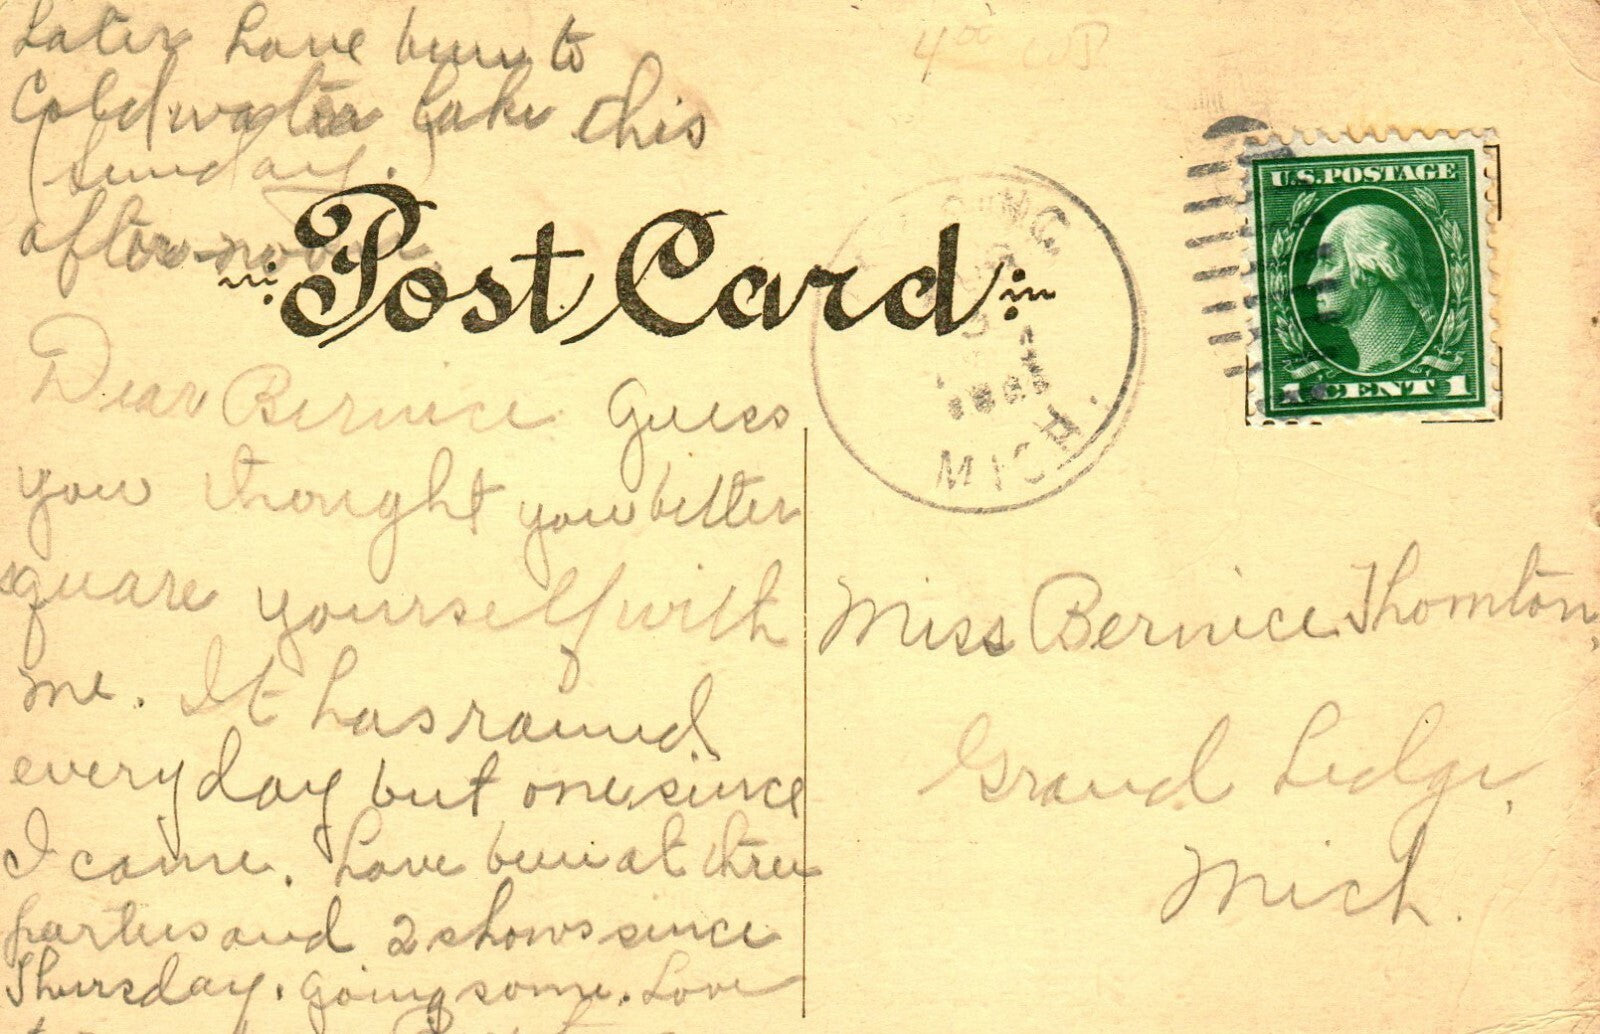 Later have been to
Coldwater Lake this
(Sunday.)
after-noon.
4⁰⁰
U.S. POSTAGE
1 CENT 1
Post Card
MICH.
Dear Bernice Guess
you thought you better
square yourself with
me. It has rained
every day but one since
I came. Have been at three
parties and 2 shows since
Thursday. Going some. Love
Miss Bernice Thornton,
Grand Ledge,
Mich.